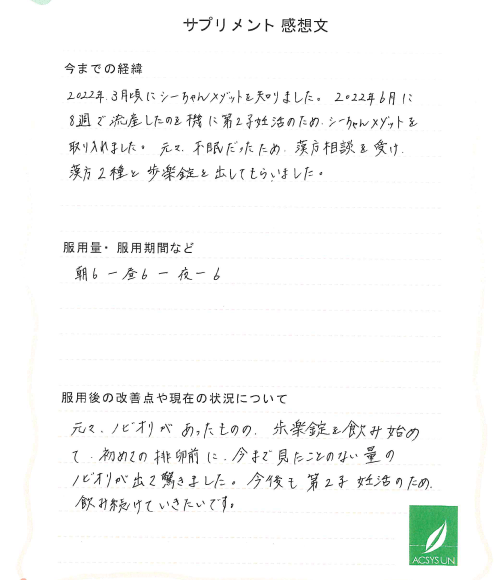 サプリメント 感想文
今までの経緯
2022年、3月頃にシーちゃんメダットを知りました。2022年6月に
8週で流産したのを機に第2子妊活のため、シーちゃんメダットを
取り入れました。元々、不眠だったため、漢方相談を受け、
漢方2種と歩楽錠を出してもらいました。
服用量・服用期間など
朝6 ー 昼6 ー 夜ー6
服用後の改善点や現在の状況について
元々、ノビオリがあったものの、歩楽錠を飲み始め
て、初めての排卵前に、今まで見たことのない量の
ノビオリが出て驚きました。今後も第2子妊活のため、
飲み続けていきたいです。
ACSYSUN